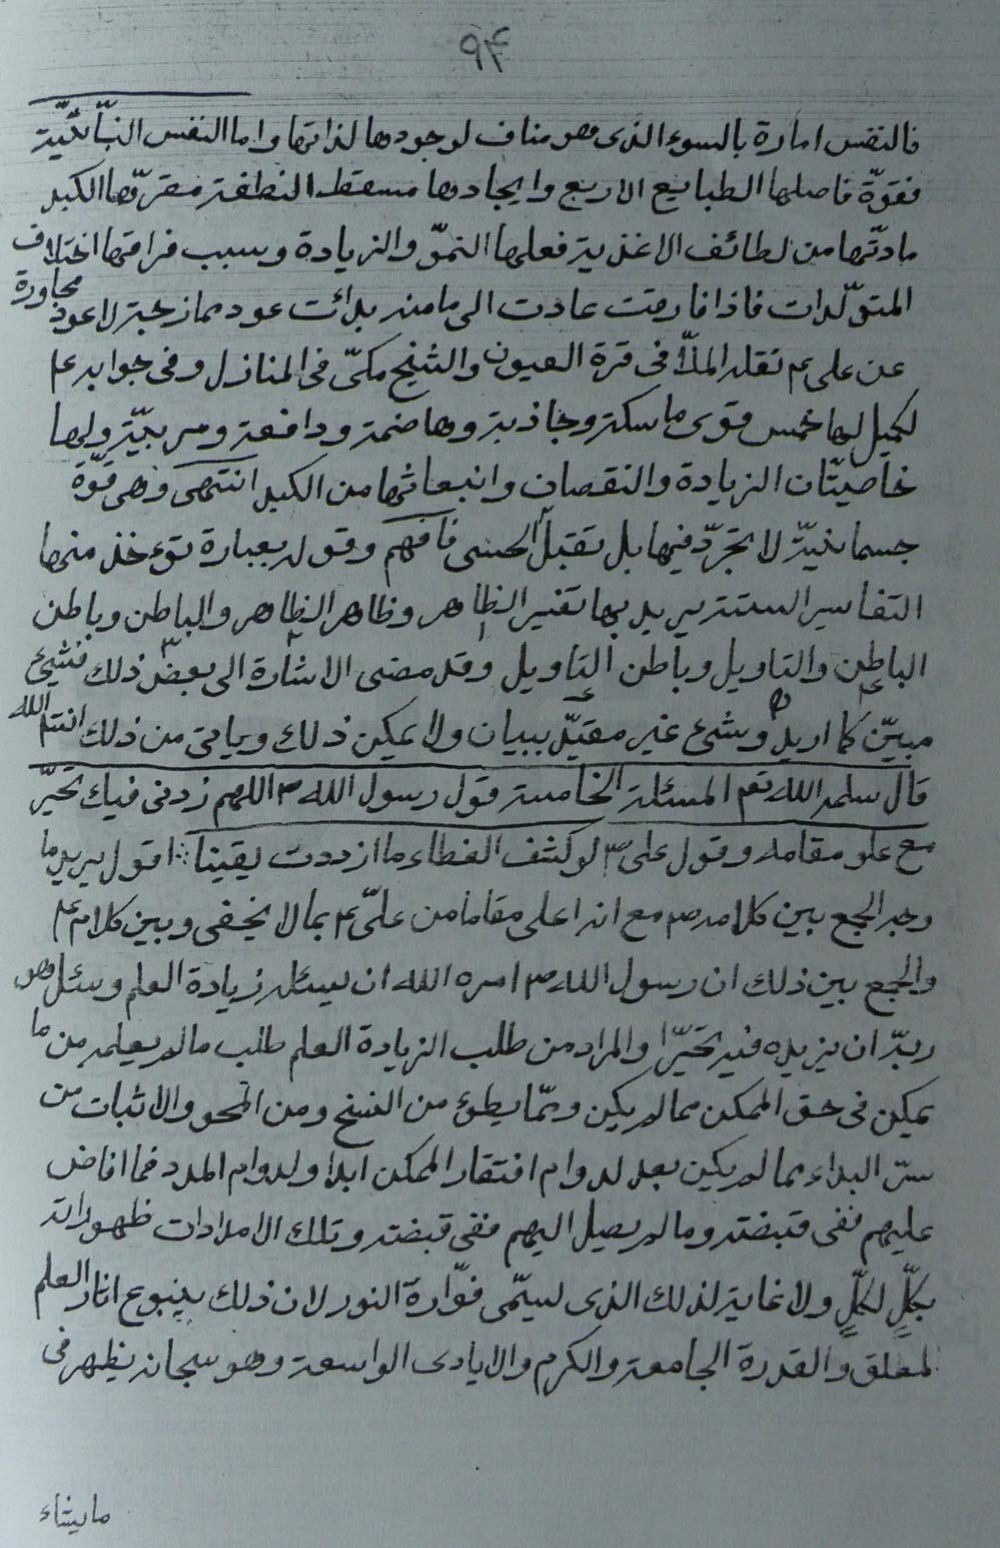 ٩٤
فالنفس امارة بالسوء الذى هو مناف لوجودها لذاتها واما النفس النباتيّة
فقوّة فاصلها الطبايع الاربع وايجادها مسقط النطفة مقرّها الكبد
مادّتها من لطائف الاغذية فعلها النموّ والزيادة وسبب فراقها اختلاف
المتولّدات فاذا فارقت عادت الى ما منه بدأت عود ممازجة لا عود مجاورة
عن على ع نقله الملّا فى قرة العيون والشيخ مكىّ فى المنازل وفى جوابه ع
لكميل لها خمس قوى ماسكة وجاذبة وهاضمة ودافعة ومربيّة ولها
خاصيّتان الزيادة والنقصان وانبعاثها من الكبد انتهى وهى قوّة
جسمانيّة لا تجرّد فيها بل تقبل الحسى فافهم وقوله بعبارة تؤخذ منها
التفاسير الستة يريد بها تفسير الظاهر وظاهر الظاهر والباطن وباطن
الباطن والتاويل وباطن التاويل وقد مضى الاشارة الى بعض ذلك فشيئ
مبيّن كما اريد وشئ غير مقيّد ببيان ولا يمكن ذلك وياتى من ذلك انشاء الله
قال سلمه الله تعم المسئلة الخامسة قول رسول الله ص اللهم زدنى فيك تحيّر
مع علو مقامه وقول على ع لو كشف الغطاء ما ازددت يقينا ∴ اقول يريد ما
وجه الجمع بين كلامه ص مع انه اعلى مقاما من علىّ ع بما لا يخفى وبين كلام ع
والجمع بين ذلك ان رسول الله ص امره الله ان يسئله زيادة العلم وسئل وهو
ربّه ان يزيده فيه تحيّرا والمراد من طلب الزيادة العلم طلب ما لم يعلمه من ما
يمكن فى حق الممكن مما لم يكن وممّا يطرئ من النسخ ومن المحو والاثبات من
سرّ البداء مما لم يكن بعد لدوام افتقار الممكن ابدا ولدوام المدد فما افاض
عليهم ففى قبضته وما لم يصل اليهم ففى قبضته وتلك الامدادات ظهوراته
بكلٍّ لكلٍّ ولا غاية لذلك الذى يسمّى فوّارة النور لان ذلك ينبوع اثار العلم
المطلق والقدرة الجامعة والكرم والايادى الواسعة وهو سبحانه يظهر فى
ما يشاء